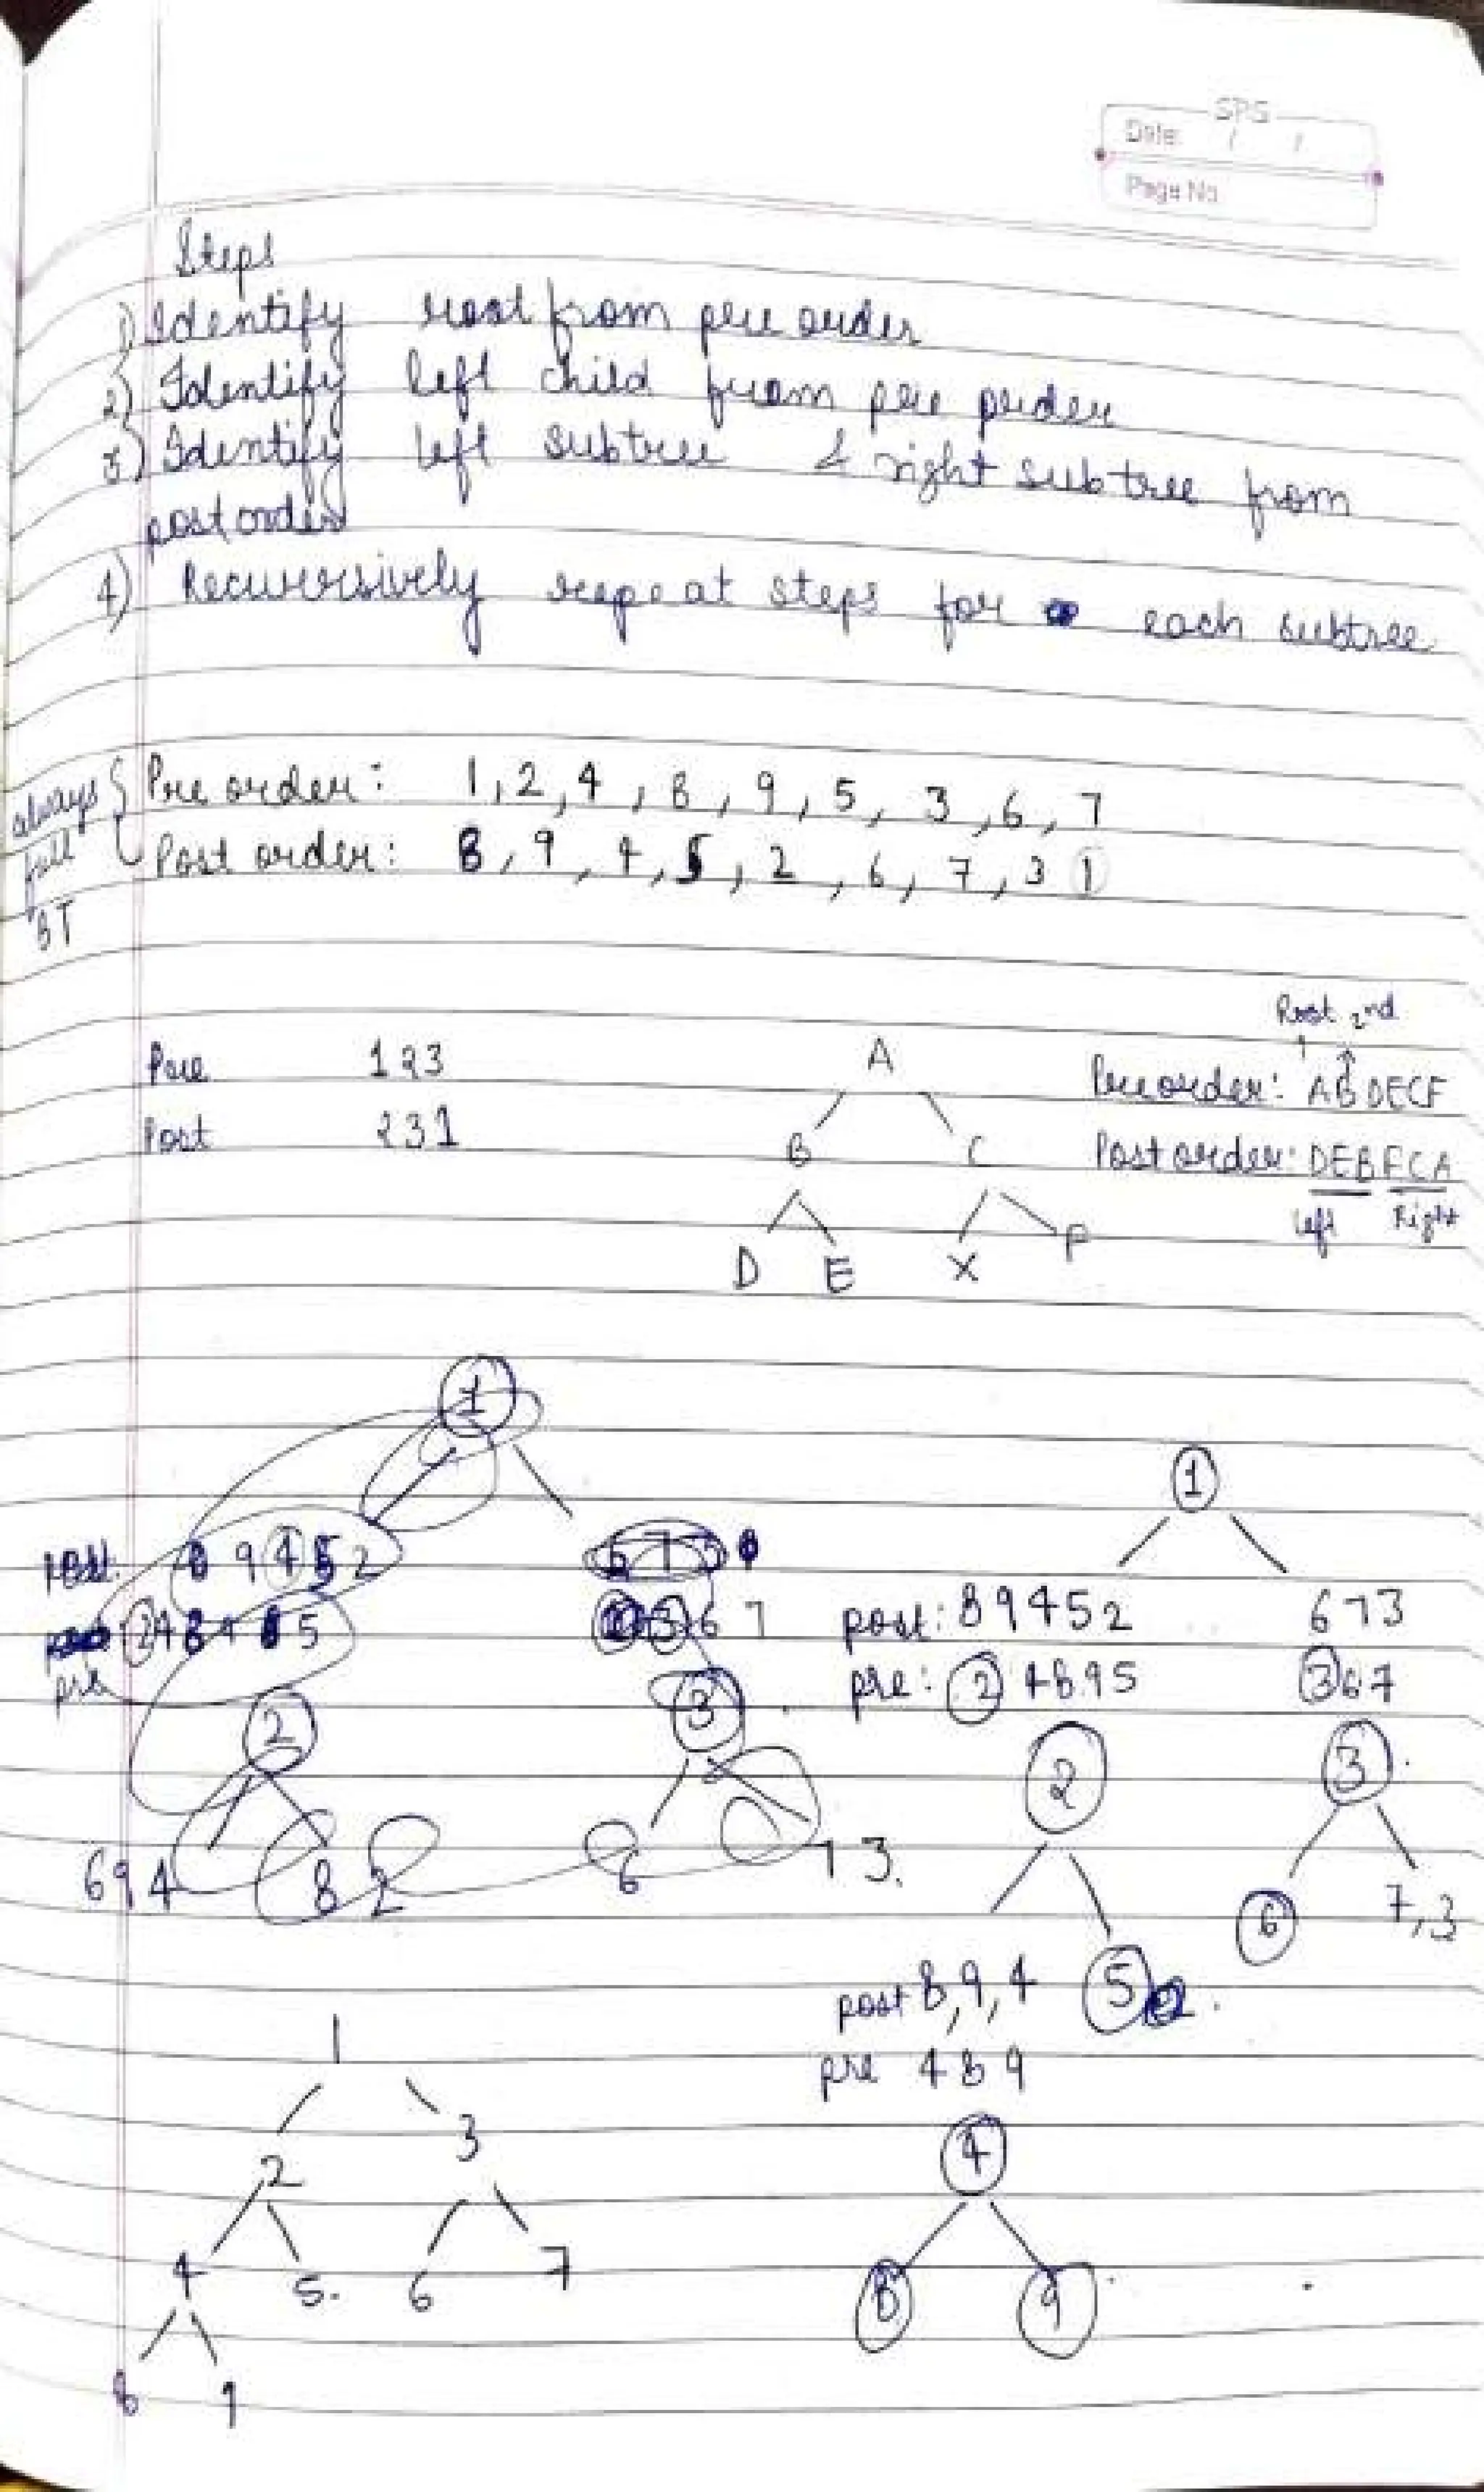 SPS
Date: / /
Page No
Steps
1) Identify root from pre order
2) Identify left child from pre order
3) Identify left subtree & right subtree from
postorder
4) Recurersively repeat steps for each subtree
always full BT
Pre order: 1, 2, 4, 8, 9, 5, 3, 6, 7
Post order: 8, 9, 4, 5, 2, 6, 7, 3 1
Root 2nd
Pre 123
Post 231
A
B C
D E X F
Preorder: ABDECF
Postorder: DEBFCA
Left Right
1
post: 8 9 4 5 2
6 7 3
pre
3 6 7
2 3
6 9 4 8 2 6 7 3.
1
post: 89452 673
pre: 2 4895 367
2 3
6 7,3
post 8,9,4 5
pre 4 8 9
4
8 9
1
2 3
4 5. 6 7
8 9